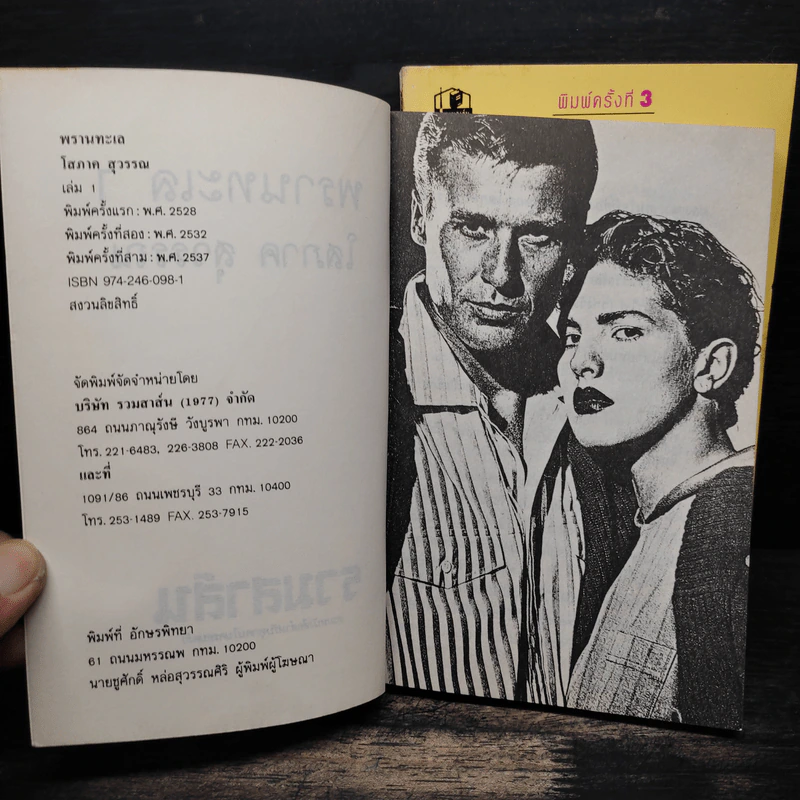 พรานทะเล
โสภาค สุวรรณ
เล่ม 1
พิมพ์ครั้งแรก : พ.ศ. 2528
พิมพ์ครั้งที่สอง : พ.ศ. 2532
พิมพ์ครั้งที่สาม : พ.ศ. 2537
ISBN 974-246-098-1
สงวนลิขสิทธิ์
จัดพิมพ์จัดจำหน่ายโดย
บริษัท รวมสาส์น (1977) จำกัด
864 ถนนภาณุรังษี วังบูรพา กทม. 10200
โทร. 221-6483, 226-3808 FAX. 222-2036
และที่
1091/86 ถนนเพชรบุรี 33 กทม. 10400
โทร. 253-1489 FAX. 253-7915
พิมพ์ที่ อักษรพิทยา
61 ถนนมหรรณพ กทม. 10200
นายชูศักดิ์ หล่อสุวรรณศิริ ผู้พิมพ์ผู้โฆษณา
พิมพ์ครั้งที่ 3
พรานทะเล 1
โสภาค สุวรรณ
รวมสาส์น